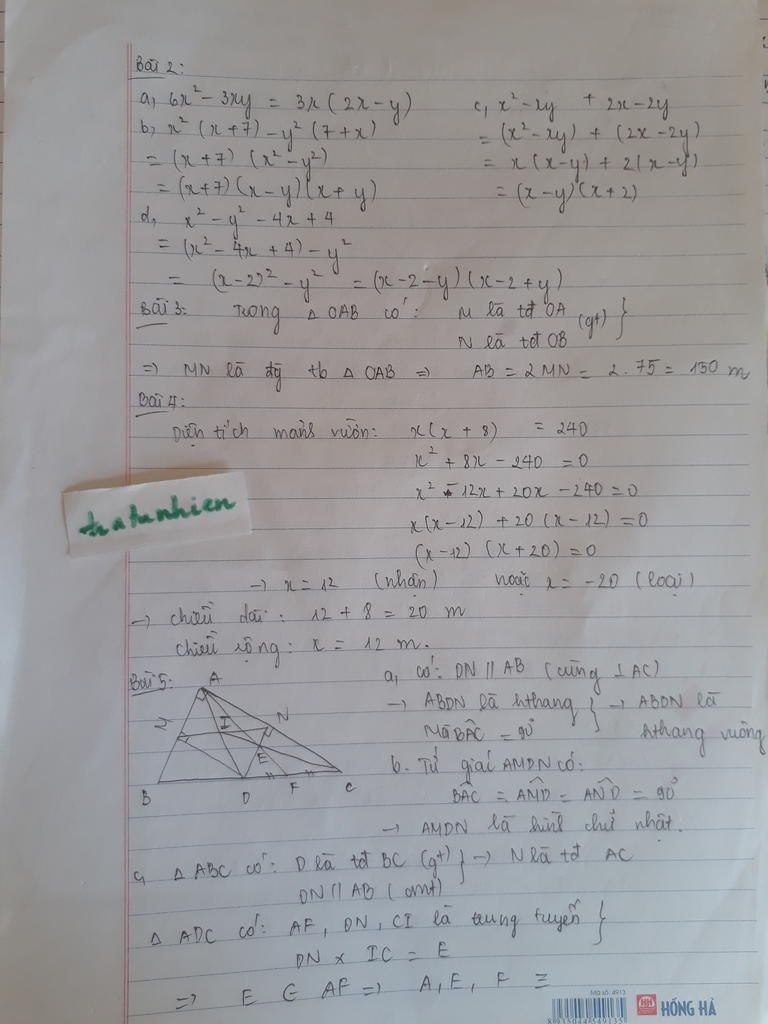 Bài 2:
a, 6x² - 3xy = 3x(2x - y)
b, x²(x+7) - y²(7+x)
= (x+7)(x² - y²)
= (x+7)(x-y)(x+y)
c, x² - xy + 2x - 2y
= (x² - xy) + (2x - 2y)
= x(x-y) + 2(x-y)
= (x-y)(x+2)
d, x² - y² - 4x + 4
= (x² - 4x + 4) - y²
= (x-2)² - y² = (x-2-y)(x-2+y)
Bài 3: Trong Δ OAB có: M là tđ OA
N là tđ OB (gt)
=> MN là đg tb Δ OAB => AB = 2MN = 2.75 = 150 m
Bài 4:
Diện tích mảnh vườn: x(x + 8) = 240
x² + 8x - 240 = 0
x² - 12x + 20x - 240 = 0
x(x-12) + 20(x-12) = 0
(x-12)(x+20) = 0
→ x = 12 (nhận) hoặc x = -20 (loại)
→ chiều dài: 12 + 8 = 20 m
chiều rộng: x = 12 m.
tratunhien
Bài 5:
A
I
N
E
B
D
F
C
a, có: DN // AB (cùng ⊥ AC)
→ ABDN là hthang
Mà BÂC = 90°
→ ABDN là
hthang vuông
b. Tứ giác AMDN có:
BÂC = AM̂D = AN̂D = 90°
→ AMDN là hình chữ nhật.
c, Δ ABC có: D là tđ BC (gt)
DN // AB (cmt)
→ N là tđ AC
Δ ADC có: AF, DN, CI là trung tuyến
DN x IC = E
=> E ∈ AF => A, E, F ≡
Mã số: 4913
8935044549135
HH
HỒNG HÀ